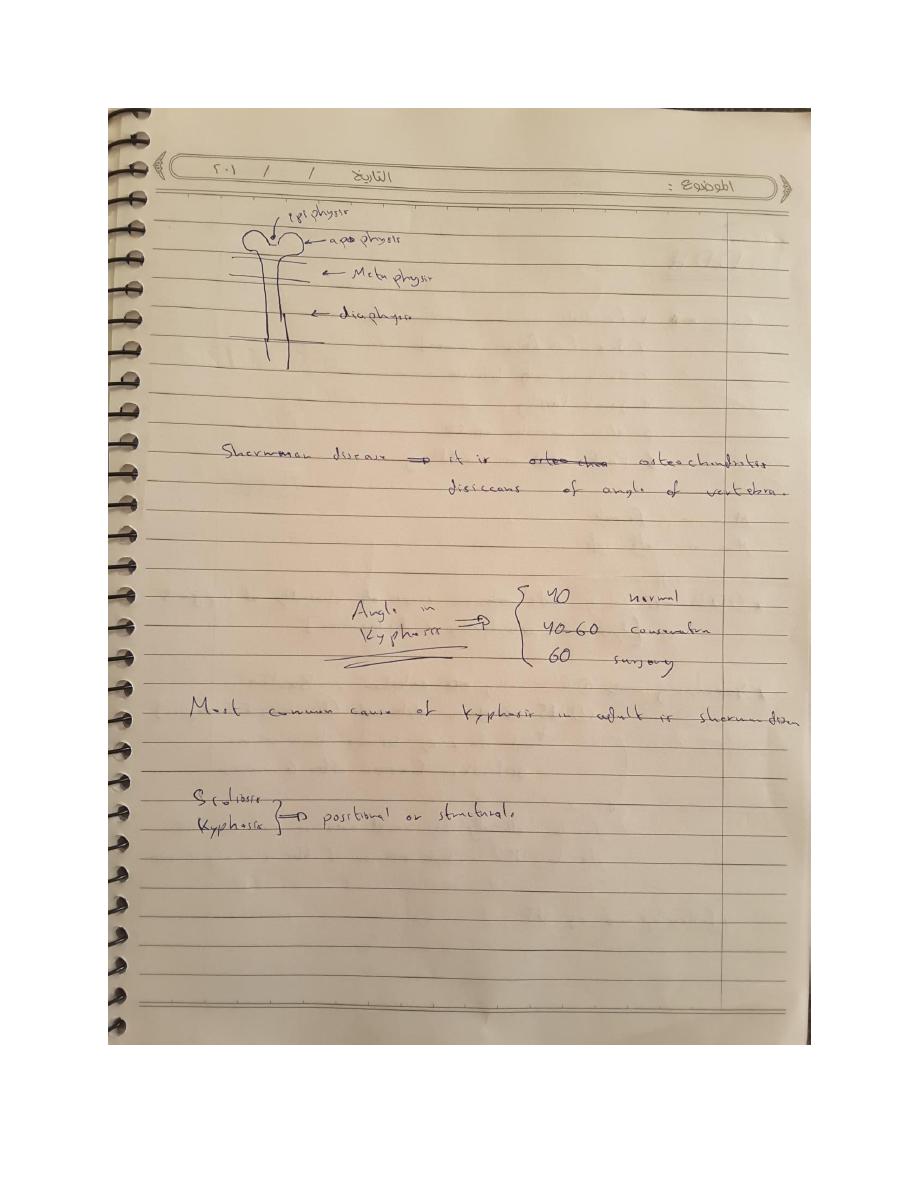 الموضوع :
التاريخ / / ٢٠١
epiphysis
apophysis
Metaphysis
diaphysis
Sherman disease ⇒ it is osteochondritis
disiccans of angle of vertebra.
Angle in
Kyphosis ⇒
40 normal
40-60
60 surgery
Most common cause of Kyphosis in adult is
Scoliosis
Kyphosis ⇒ positional or structural.